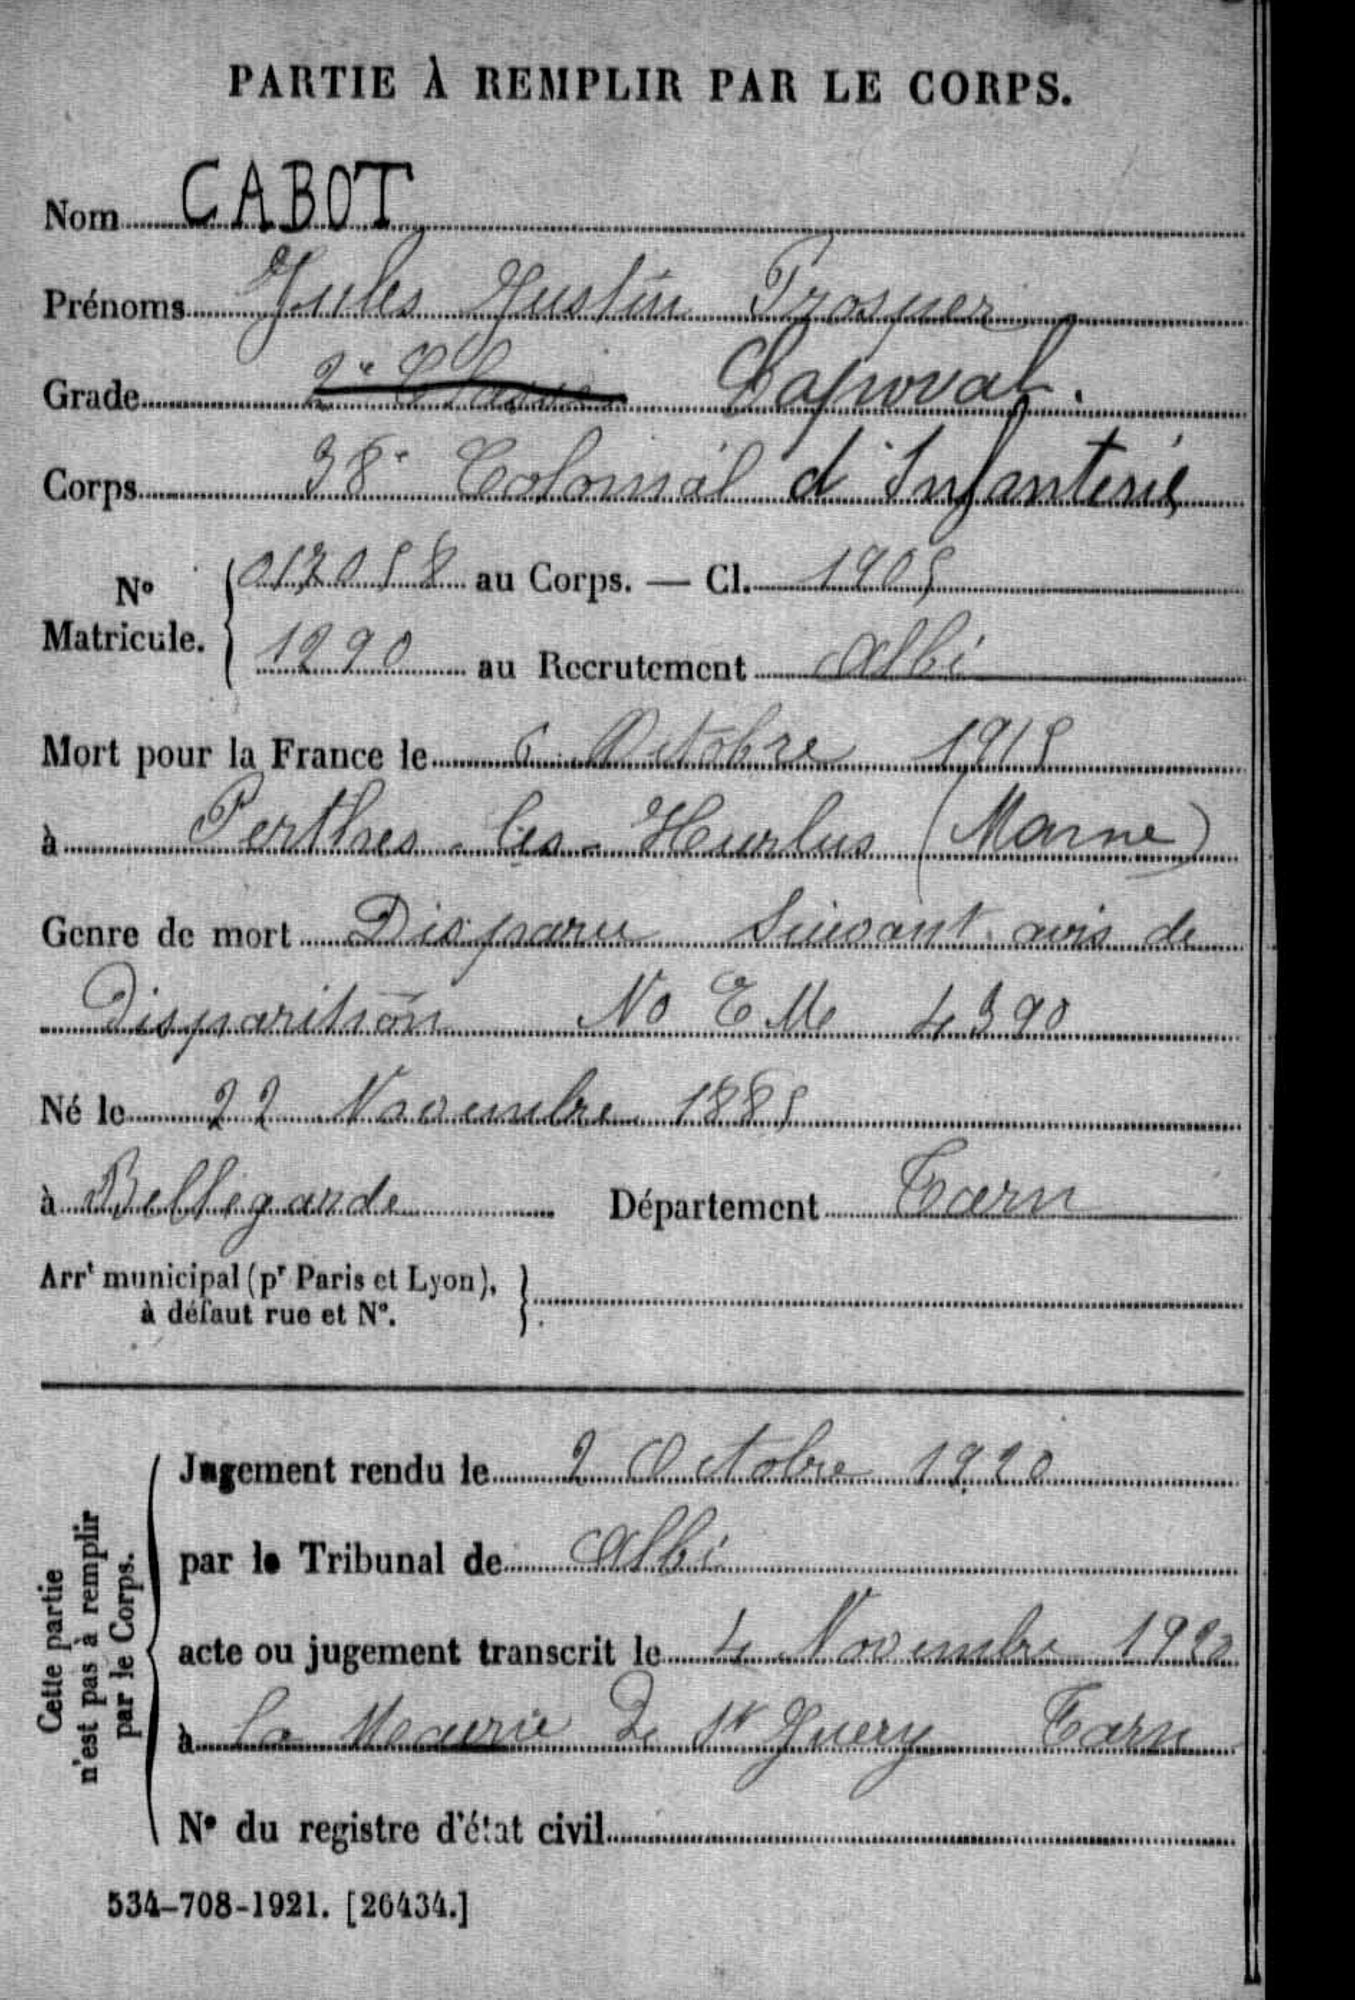 PARTIE À REMPLIR PAR LE CORPS.
Nom CABOT
Prénoms Jules Justin Prosper
Grade 2e Classe Caporal.
Corps 38e Colonial d'Infanterie
No Matricule. 017058 au Corps. — Cl. 1905
1290 au Recrutement Albi
Mort pour la France le 6 Octobre 1915
à Perthes-les-Hurlus (Marne)
Genre de mort Disparu Suivant avis de
Disparition No EMe 4390
Né le 22 Novembre 1885
à Bellegarde Département Tarn
Arrt municipal (pr Paris et Lyon),
à défaut rue et No.
Cette partie
n'est pas à remplir
par le Corps.
Jugement rendu le 2 Octobre 1920
par le Tribunal de Albi
acte ou jugement transcrit le 4 Novembre 1920
à La Mairie De St Juery Tarn
No du registre d'état civil
534-708-1921. [26434.]